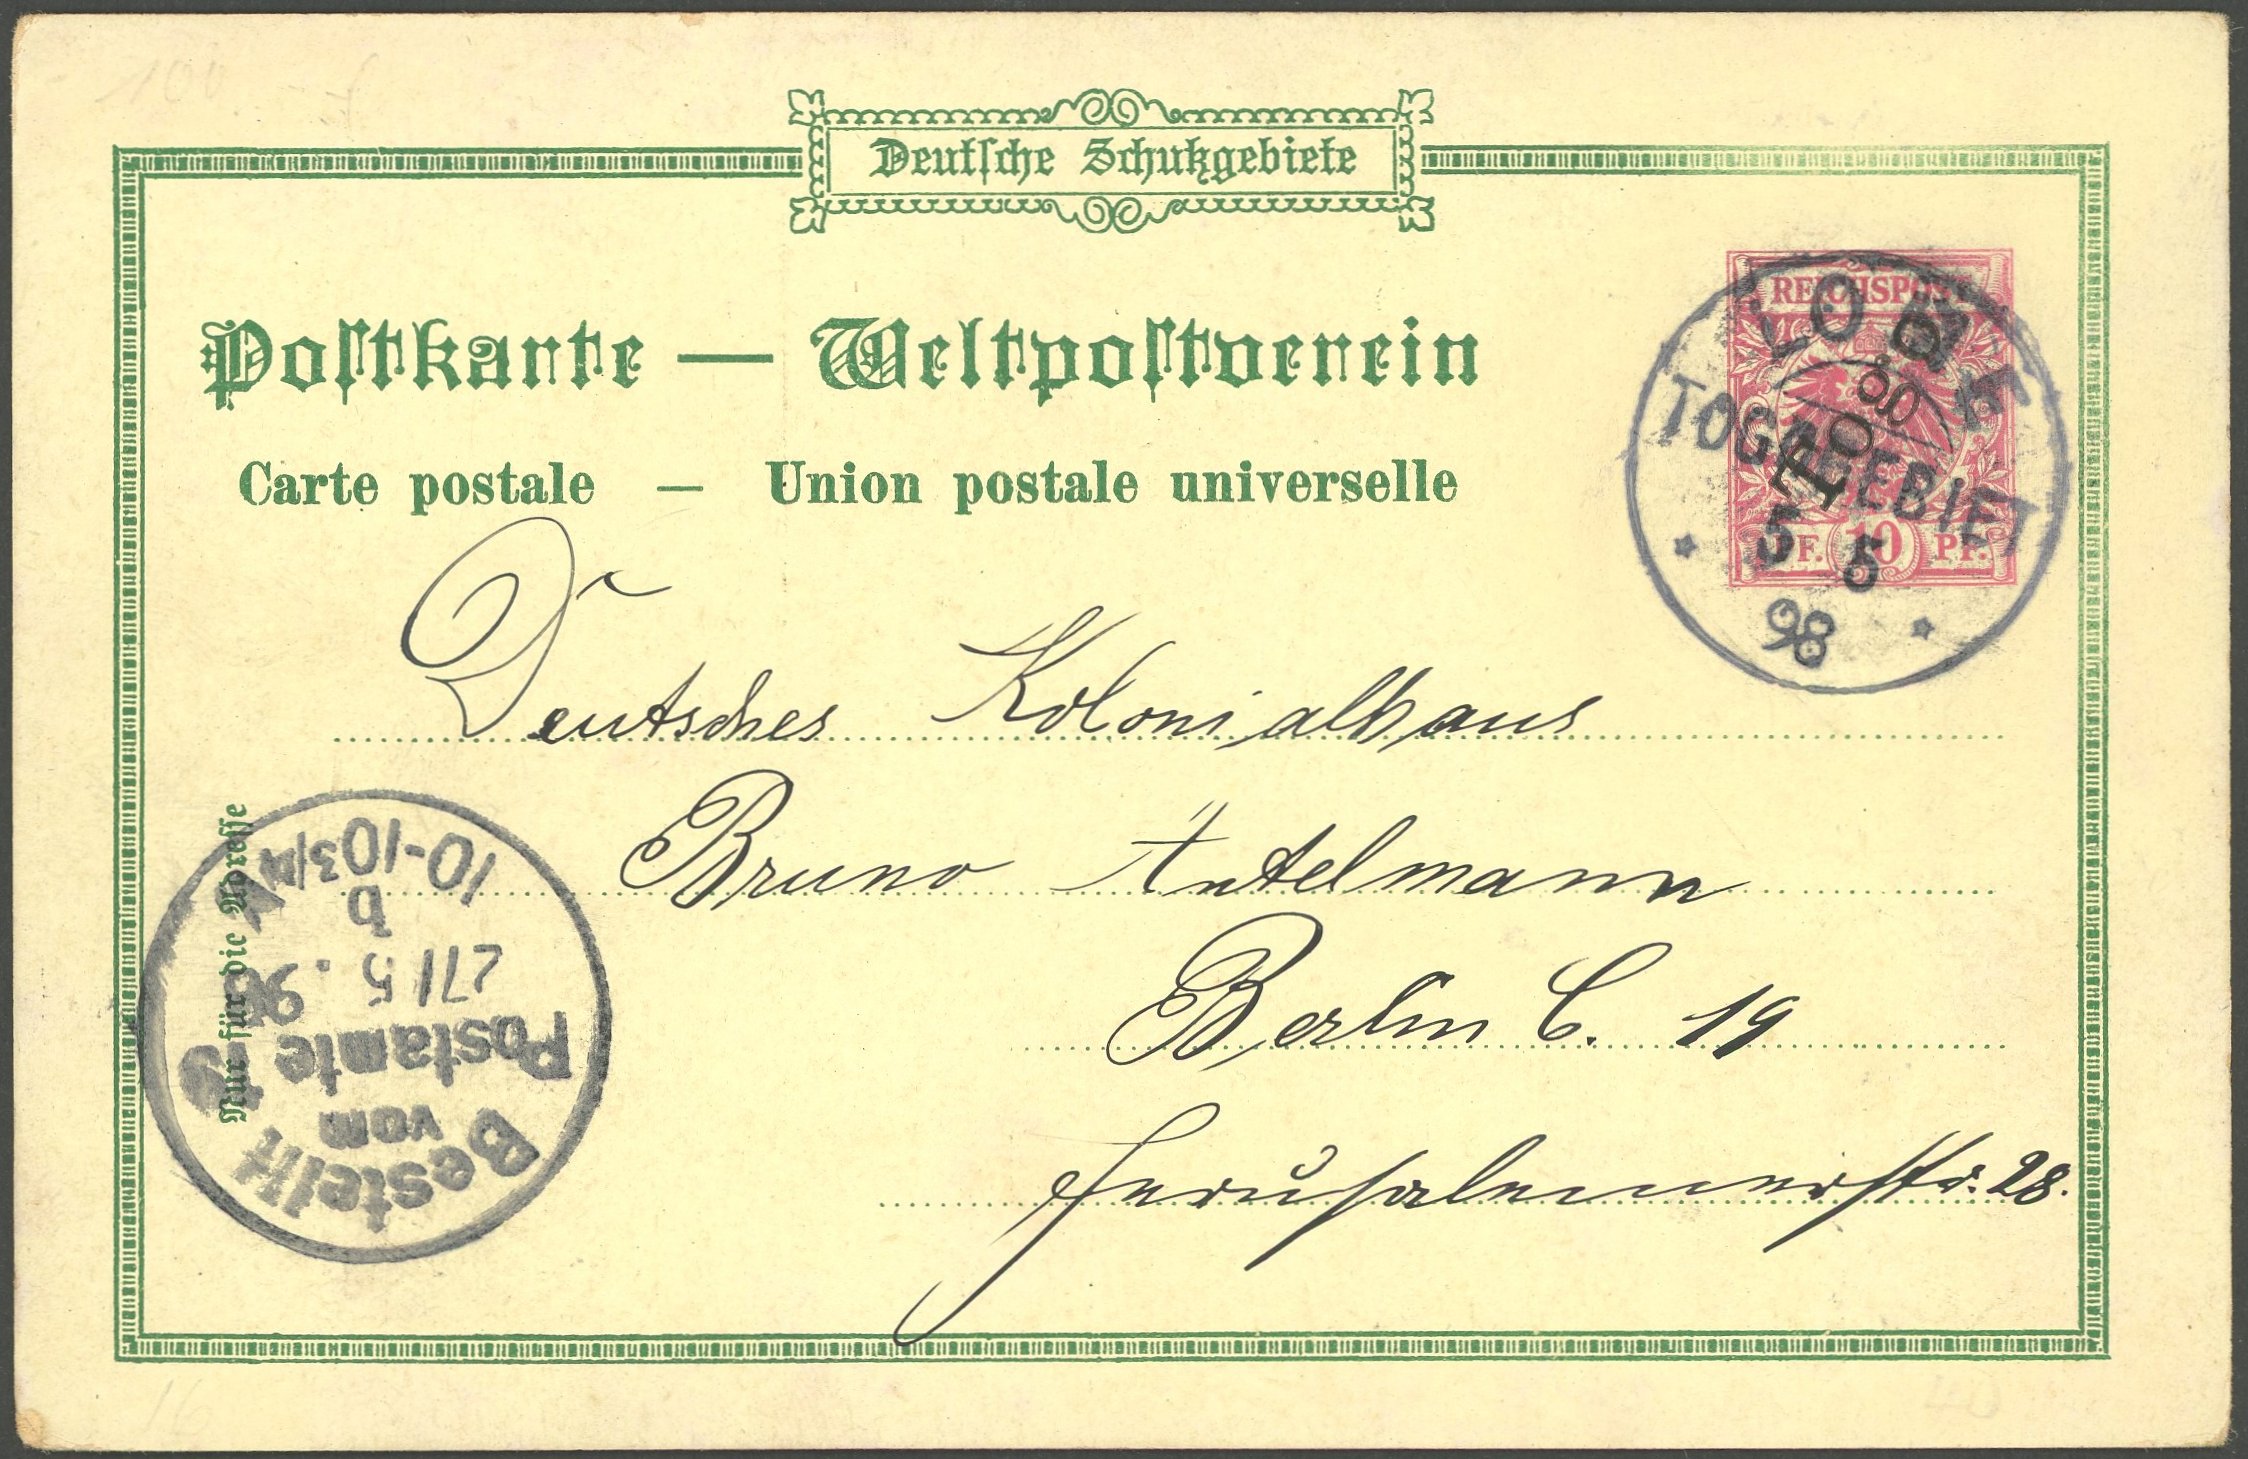 Deutsche Schutzgebiete
Postkarte — Weltpostverein
Carte postale — Union postale universelle
REICHSPOST
PF. 10 PF.
LOME
TOGOGEBIET
5 5
98
Deutsches Kolonialhaus
Bruno Antelmann
Berlin C. 19
Jerusalemerstr. 28.
Nur für die Adresse
Bestellt
vom
Postamte 19
27/5. 98
b
10-10 3/4 V